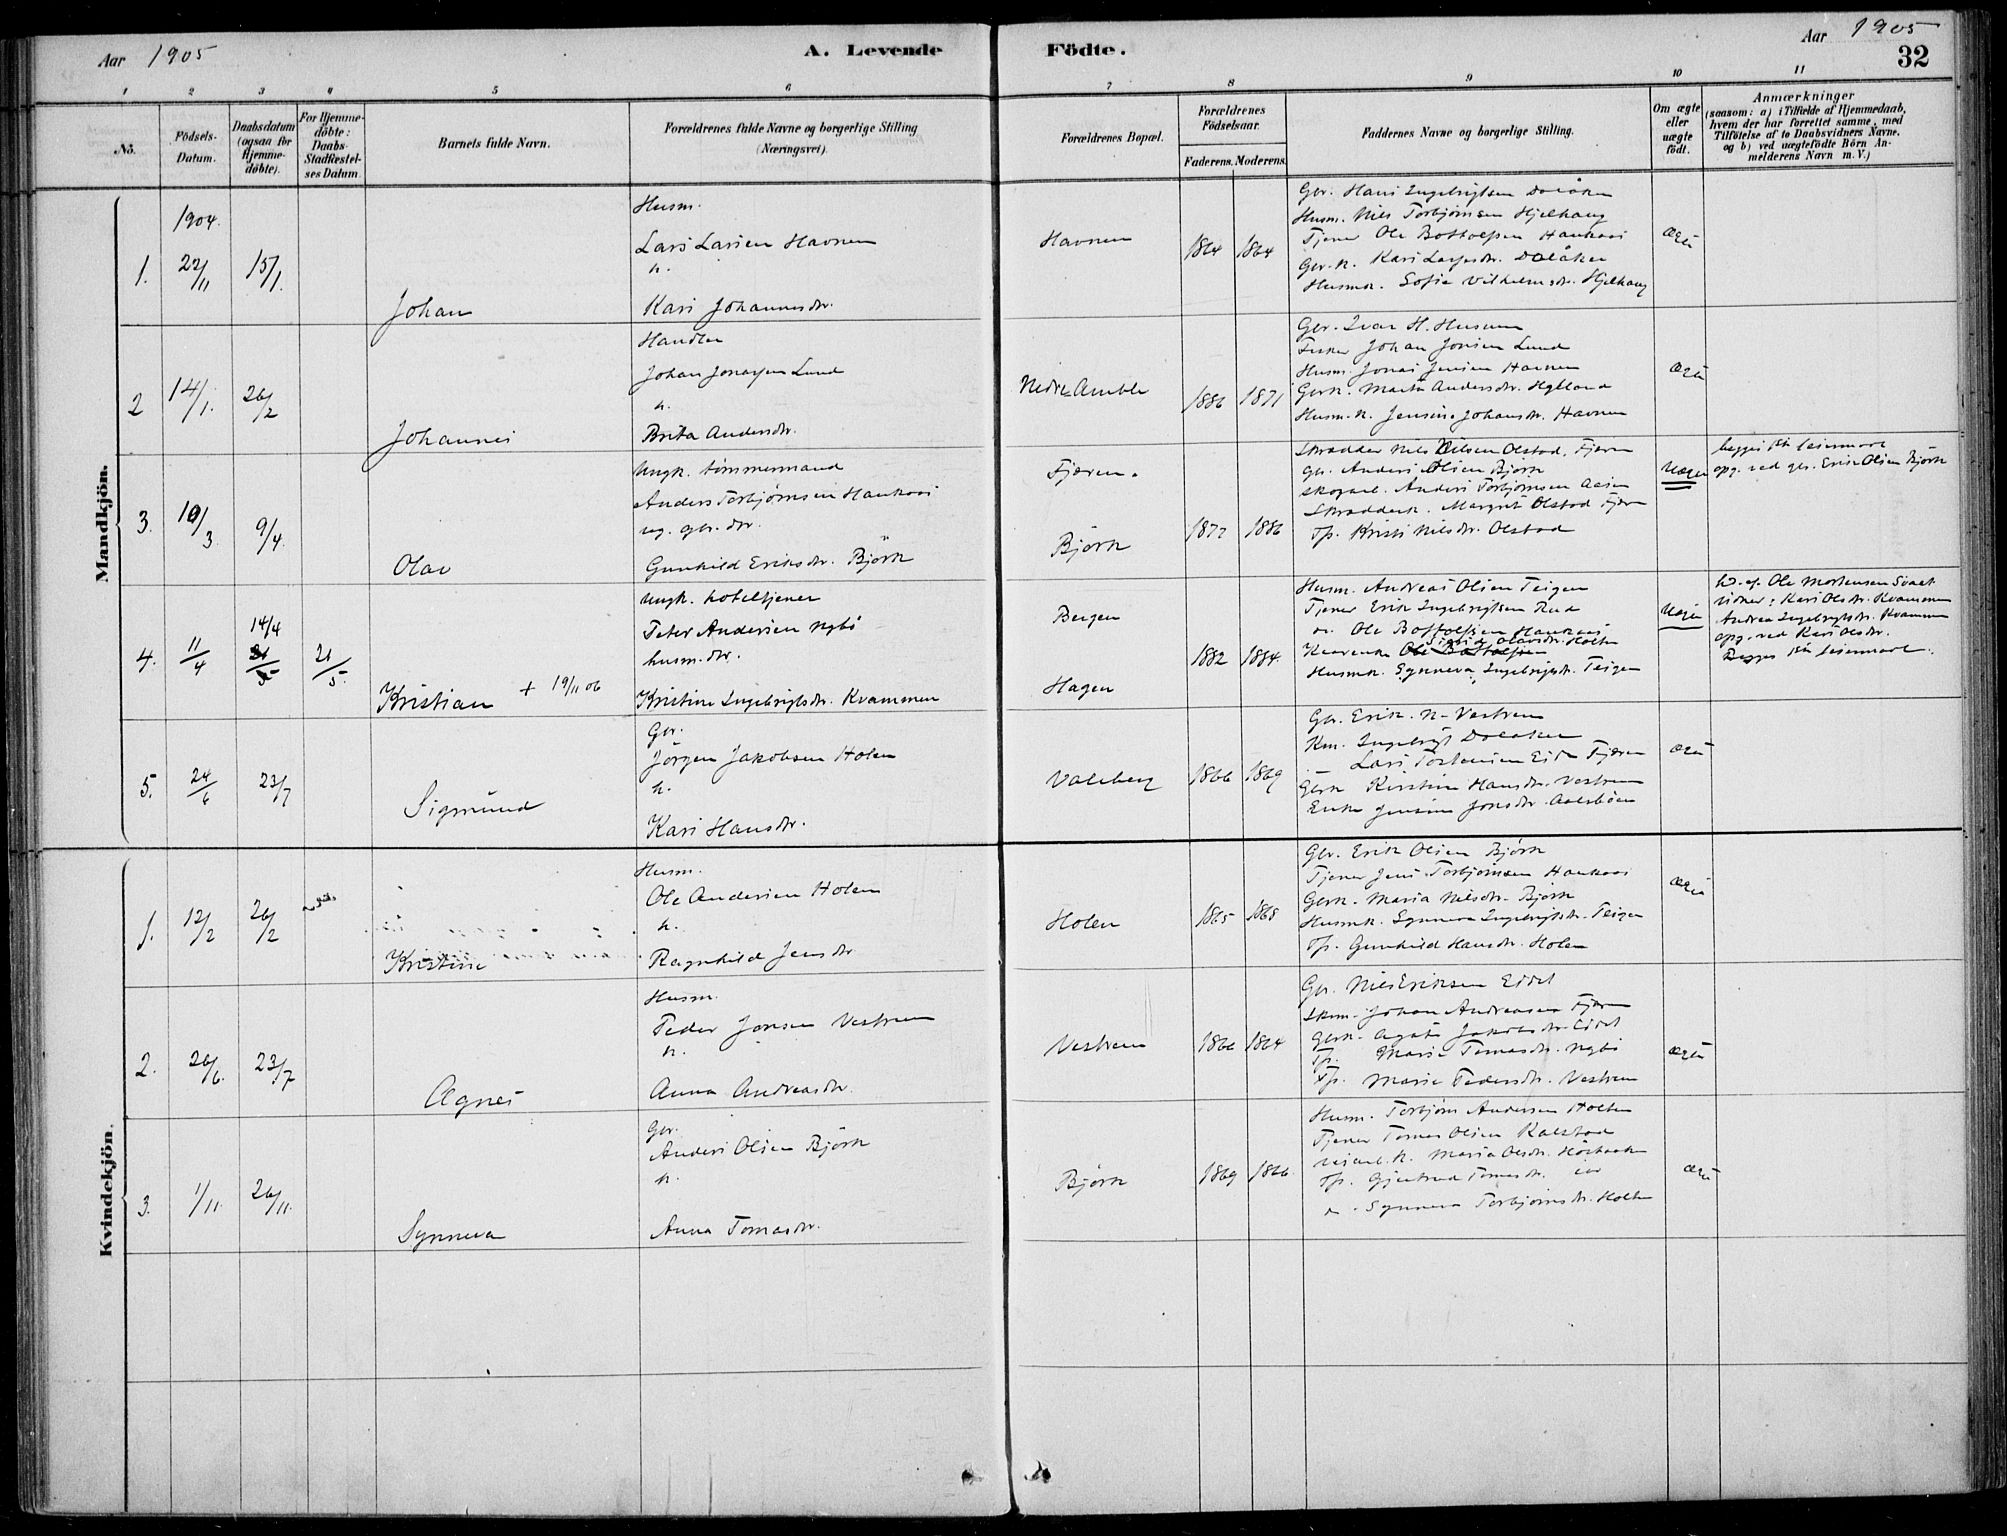 Aar 1905
A. Levende Födte.
Aar 1905
32
1 2 3 4 5 6 7 8 9 10 11
No.
Födsels-Datum.
Daabsdatum (ogsaa for Hjemme-døbte).
For Hjemme-døbte: Daabs-Stadfæstel-ses Datum.
Barnets fulde Navn.
Forældrenes fulde Navne og borgerlige Stilling (Næringsvei).
Forældrenes Bopæl.
Forældrenes Födselsaar.
Faderens. Moderens.
Faddernes Navne og borgerlige Stilling.
Om ægte eller uægte født.
Anmærkninger
(saasom: a) i Tilfælde af Hjemmedaab, hvem der har forrettet samme, med Tilføielse af to Daabsvidners Navne, og b) ved uægtefødte Börn An-melderens Navn m. V.)
Mandkjön.
1904.
1. 22/11 15/1.
Johan
Husm.
Lars Larsen Havnen
h.
Kari Johannesdr.
Havnen
1864 1864
Gbr. Hans Ingebrigtsen Dalåker
Husm. Nils Torbjörnsen Hjelhaug
Tjener Ole Bottolfsen Haukaas
Gbr.k. Kari Larsdr. Dalåker
Husmk. Sofie Vilhelmsdr. Hjelhaug
ægte
2 14/1. 26/2
Johannes
Handler
Johan Jonassen Lund
h.
Brita Andersdr.
Nedre Amble
1886 1871
Gbr. Ivar H. Husum
Johan Jonsen Lund
Husm. Jonas Jensen Havnen
Gbrk. Marta Andersdr. Hylland
Husm.k. Jensine Johansdr. Havnen
ægte
3. 10/3 9/4.
Olav
Ungk. tømmermand
Anders Torbjørnsen Haukaas
ug. gbr. dtr.
Gunhild Eriksdr. Björk
Fjæren.
Björk
1877 1886
Skrædder Nils Nilsen Olstad, Fjæren
Gbr. Anders Olsen Björk
Skogarb. Anders Torbjörnsen Aasen
Skrædderk. Margrit Olstad Fjæren
Tp. Kristi Nilsdr. Olstad
Uægte
begges 1ste leiermaal
opg. ved gbr. Erik Olsen Björk
4. 11/4 14/4 21/5 21/5.
Kristian + 19/11 06
Ungk. hoteltjener
Peter Andersen Nybö
husm. dtr.
Kristine Ingebrigtsdr. Kvammen
Bergen
Hagen
1882 1884
Husm. Andreas Olsen Teigen
Tjener Erik Ingebrigtsen Rud
do. Ole Bottolfsen Haukaas
Husmk. Synneva Ingebrigtsdr. Teigen
Uægte
hd. af Ole Mortensen Svaet
vidner: Kari Olsdr. Kvammen
Andrea Ingebrigtsdr. Kvammen
opg. ved Kari Olsdr.
Begges 1ste leiermaal.
5. 24/6 23/7
Sigmund
Gbr.
Jörgen Jakobsen Holen
h.
Kari Hansdr.
Valeberg
1866 1869
Gbr. Erik N. Vestrem
Km. Ingebrigt Dalåker
Lars Torstensen Eide Fjæren
Gbrk Kirstine Hansdr. Vestrem
Enke Jensine Jonsdr.
ægte
Kvindekjön.
1. 12/2 26/2
Kristine
Husm.
Ole Andersen Holen
h.
Ragnhild Jensdr
Holen
1865 1868
Gbr. Erik Olsen Björk
Tjener Jens Torbjörnsen Haukaas
Gbrk. Maria Nilsdr. Björk
Husmk. Synneva Ingebrigtsdr. Teigen
Tp. Gunhild Hansdr. Holen
ægte
2. 26/6. 23/7
Agnes
Husm.
Peder Jonsen Vestrem
h.
Anna Andreasdr.
Vestrem
1866 1864
Gbr. Nils Eriksen Eidet
Skm. Johan Andreasen Fjæren
Gbrk. Agate Jakobsdr. Eidet
Tp. Marie Tomasdr. Nybö
Tp. Marie Pedersdr. Vestrem
ægte
3. 1/11. 26/11.
Synneva
Gbr.
Anders Olsen Björk
h.
Anna Tomasdr.
Björk
1869 1866
Husm. Torbjörn Andersen Holten
Tjener Tomas Olsen Kalstad
Maria Olsdr.
Tp. Gjertrud Tomasdr.
do. Synneva Torbjörnsdr. Holten
ægte